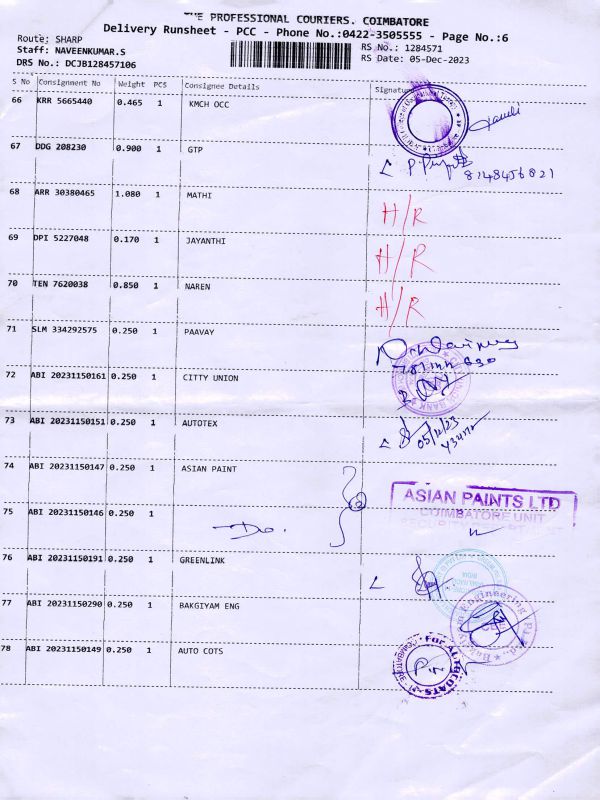 THE PROFESSIONAL COURIERS. COIMBATORE
Delivery Runsheet - PCC - Phone No.:0422-3505555 - Page No.:6
Route: SHARP
RS No.: 1284571
Staff: NAVEENKUMAR.S
RS Date: 05-Dec-2023
DRS No.: DCJB128457106
S No Consignment No Weight PCS Consignee Details Signature
66 KRR 5665440 0.465 1 KMCH OCC
67 DDG 208230 0.900 1 GTP
8148456821
68 ARR 30380465 1.080 1 MATHI H/R
69 DPI 5227048 0.170 1 JAYANTHI H/R
70 TEN 7620038 0.850 1 NAREN H/R
71 SLM 334292575 0.250 1 PAAVAY
72 ABI 20231150161 0.250 1 CITTY UNION
73 ABI 20231150151 0.250 1 AUTOTEX
05/12/23
74 ABI 20231150147 0.250 1 ASIAN PAINT
ASIAN PAINTS LTD
COIMBATORE UNIT
75 ABI 20231150146 0.250 1 Do.
76 ABI 20231150191 0.250 1 GREENLINK
77 ABI 20231150290 0.250 1 BAKGIYAM ENG
78 ABI 20231150149 0.250 1 AUTO COTS